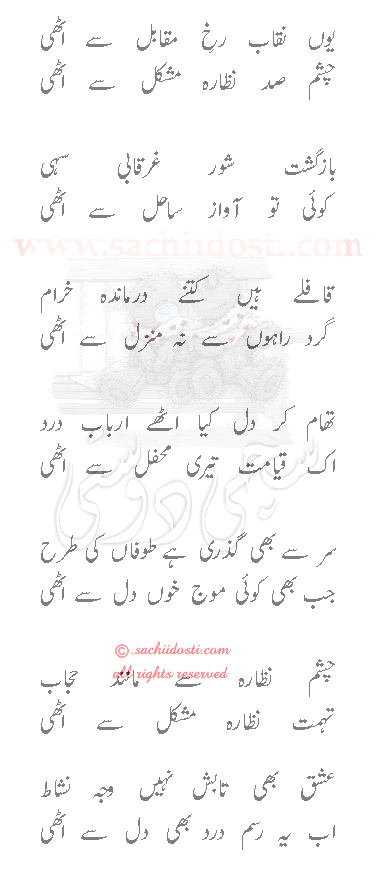 یوں نقاب رخِ مقابل سے اٹھی
چشم صد نظارہ مشکل سے اٹھی
بازگشت شور غرقابی سہی
کوئی تو آواز ساحل سے اٹھی
www.sachiidosti.com
قافلے ہیں کتنے درماندہ خرام
گرد راہوں سے نہ منزل سے اٹھی
تھام کر دل کیا اٹھے ارباب درد
اک قیامت تیری محفل سے اٹھی
سچی دوستی
سر سے بھی گذری ہے طوفاں کی طرح
جب بھی کوئی موج خوں دل سے اٹھی
©.sachiidosti.com
all rights reserved
چشم نظارہ سے مانند حجاب
تہمت نظارہ مشکل سے اٹھی
عشق بھی تابش نہیں وجہ نشاط
اب یہ رسم درد بھی دل سے اٹھی